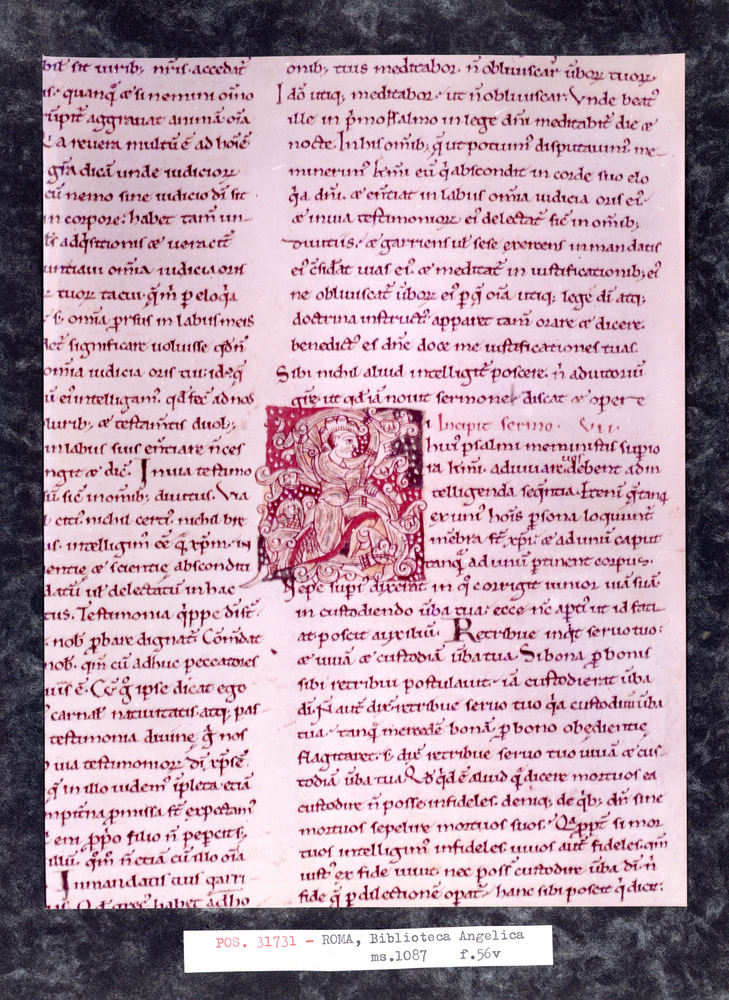 sit uirib; nr̄is accedat̄
quanq̄ & si nemini om̄o
aggrauat animā. oīa
a reuera multū ē ad hoīē
gr̄a dicā unde iudicior̄
cū nemo sine iudicio dī sit
in corpore: habet tam̄ un
adq̄sitionis & ueracit̄
untiaui omīa iudicia oris
tuor̄ tacui. qm̄ p eloq̄a
s; omīa p̱rsus in labiis meis
significare uoluisse qd̄ n̄
omīa iudicia oris tui: id ē q̄
ū ei intelligam̄. q̄ā fec̄ ad nos
& testam̄tis duob;
in labiis suis en̄tiare n̄ ces
& dic̄. In uia testimo
sic̄ in om̄ib; diuitiis. Via
nichil certi. nichil bre
us. intelligim̄ eē q̄ xp̄m. in
& scientię absconditi
ut̄ delectatū in hac
Testimonia q̄ppe di
nob̄ p̱bare dignat̄. Com̄dat
nob. qm̄ cū adhuc peccatores
ē. Cū g̊ ipse dicat ego
carnal̄ natiuitatis. atq; pas
testimonia diuinę g̊ nos
uia testimonior̄ dī. xp̄s ē.
q̄ in illo iudem̄ ip̄leta. etiā
p̱missa s̄t̄ expectam̄
p̱prio filio n̄ pepercit s;
illū. qm̄ n̄ etiā cū illo oīa
In mandatis tuis garri
habet ad ho
onib; tuis meditabor. n̄ obliuiscar ūbor̄ tuor̄.
Idō utiq; meditabor. ut n̄ obliuiscar. Vnde beat̄
ille in p̄mo psalmo in lege dn̄i meditabit̄ die &
nocte. In his om̄ib; q̄ ut potuim̄ disputauim̄ me
minerim̄ km̄i eū q̄ abscondit in corde suo elo
q̄a dn̄i. & en̄tiat in labiis omīa iudicia oris ei.
& in uia testimonior̄ ei delectat̄ sic̄ in om̄ib;
diuitiis. & garriens ul̄ sese exercens in mandatis
ei c̄sid̄at uias ei. & meditat̄ in iustificationib; ei
ne obliuiscat̄ ūbor̄ ei p q̄ oīa utiq; lege dī atq;
doctrina instruct̄ apparet tam̄ orare & dicere.
benedict̄ es dn̄e doce me iustificationes tuas.
Sibi nichil aliud intelligit̄ poscere. n̄ adiutoriū
grę ut qd̄ iā nouit sermone discat & opere
Incipit sermo. VII.
huı̄ psalmi meministis supio
ra km̄i. adiuuare uos debent ad in
telligenda seq̄ntia. Etenī q̄ tanq̄
ex uni hoīs p̱sona loquunt̄
mēbra s̄t̄ xp̄i. & ad unū caput
tanq̄ ad unū p̱tinent corpus.
Sepe supi dixerat in q̊ corrigit iunior uiā suā
in custodiendo ūba tua: ecce nc̄ ap̱ti ut id faci
at poscit auxiliū. Retribue inq̇t seruo tuo:
& uiuā & custodiā ūba tua. Si bona p bonis
sibi retribui postulauit. iā custodierat ūba
dī. N̄ aut̄ dix̄ retribue seruo tuo q̄a custodiui ūba
tua. tanq̄ mercedē bonā p bono obedientię
flagitaret. s; dix̄ retribue seruo tuo uiuā & cus
todiā ūba tua. qd̄ ē aliud q̄ dicere mortuos ea
custodire n̄ posse infideles. deniq; de q̇b; dn̄s sine
mortuos sepelire mortuos suos. Q̄ap̱pt̄ si mor
tuos intelligim̄ infideles. uiuos aut̄ fideles. qm̄
iust̄ ex fide uiuit. nec poss̄ custodire ūba dī. n̄
fide q̄ p dilectionē op̱at̄. hanc sibi poscit q̄ dicit.
POS. 31731 - ROMA, Biblioteca Angelica
ms.1087 f.56v